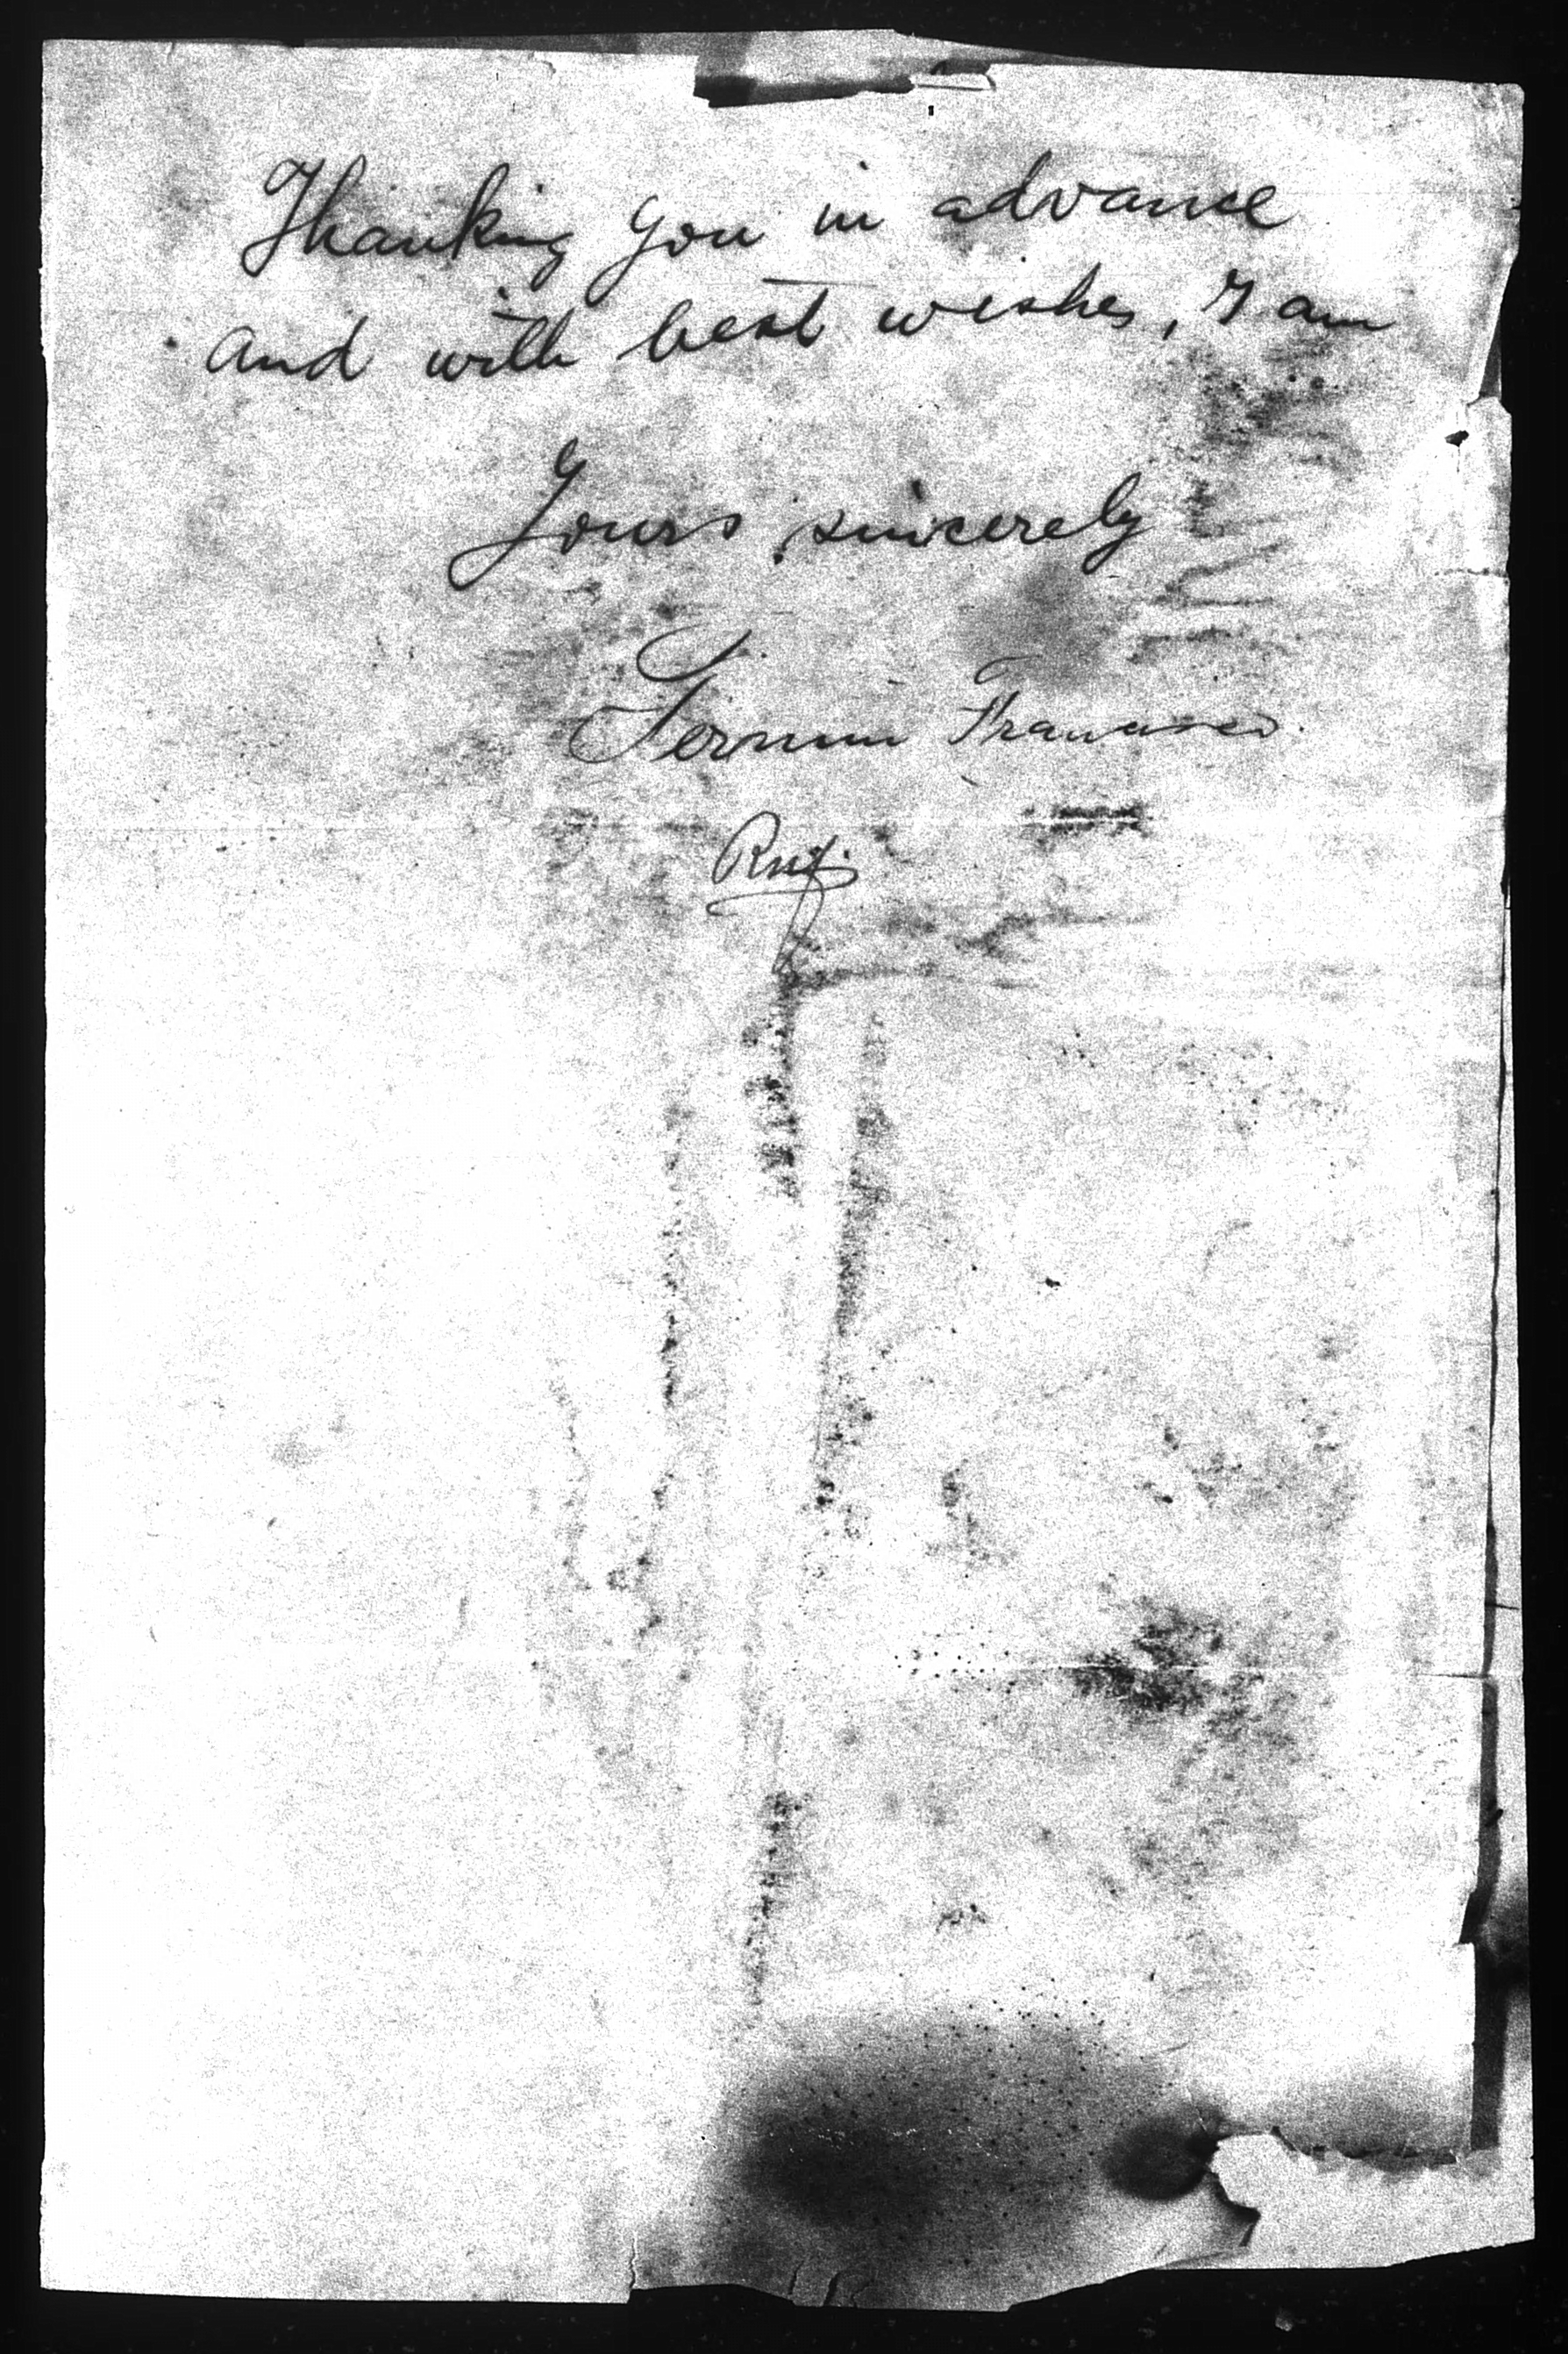 Thanking you in advance
and with best wishes, I am
Yours sincerely
Fermin Francisco.